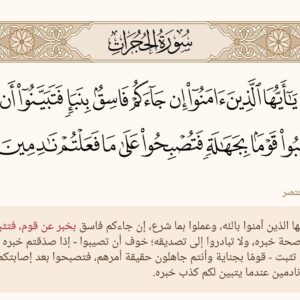 سُورَةُ الحُجُرَاتِ
يَـٰٓأَيُّهَا ٱلَّذِينَ ءَامَنُوٓا۟ إِن جَآءَكُمْ فَاسِقٌۢ بِنَبَإٍ فَتَبَيَّنُوٓا۟ أَن
بُوا۟ قَوْمًۢا بِجَهَـٰلَةٍ فَتُصْبِحُوا۟ عَلَىٰ مَا فَعَلْتُمْ نَـٰدِمِينَ
ختصر
ها الذين آمنوا بالله، وعملوا بما شرع، إن جاءكم فاسق بخبر عن قوم، فتثبت
صحة خبره، ولا تبادروا إلى تصديقه؛ خوف أن تصيبوا - إذا صدقتم خبره
تثبت - قومًا بجناية وأنتم جاهلون حقيقة أمرهم، فتصبحوا بعد إصابتكم
نادمين عندما يتبين لكم كذب خبره.